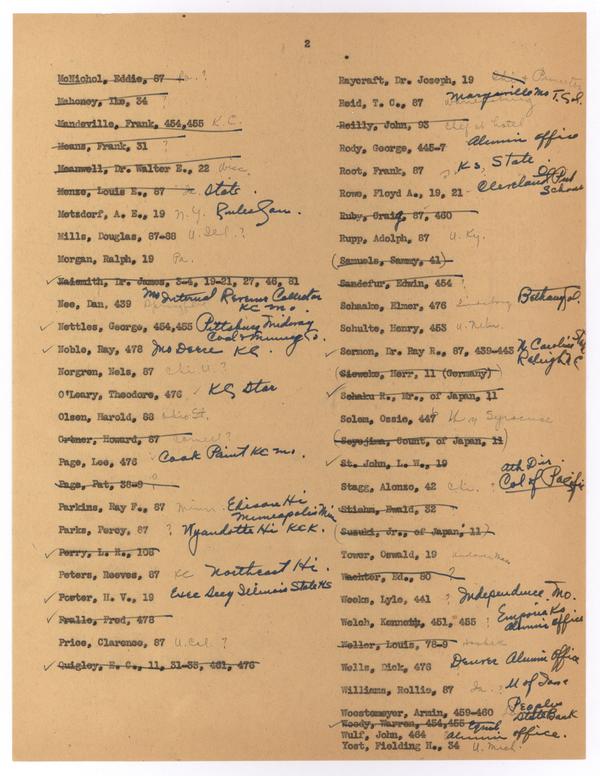 2
McNichol, Eddie, 87 ?
Mahoney, Ike, 34 ?
Mandeville, Frank, 454,455 K.C.
Means, Frank, 31 ?
Meanwell, Dr. Walter E., 22 Wisc.
Menze, Louis E., 87 State.
Metzdorf, A. E., 19 N.Y.
Mills, Douglas, 87-88 U. Ill. ?
Morgan, Ralph, 19 Pa.
Naismith, Dr. James, 3-4, 19-21, 27, 46, 81
Nee, Dan, 439 Mo Internal Revenue Collector
KC Mo.
Nettles, George, 454,455 Pittsburg Midway
Coal & Mining Co.
Noble, Ray, 478 Jno Deere KC.
Norgren, Nels, 87 Chi. U. ?
O'Leary, Theodore, 476 KC Star
Olsen, Harold, 88 Ohio St.
Ortner, Howard, 87 Cornell ?
Page, Lee, 476 Cook Paint KC Mo.
Page, Pat, 38-9
Parkins, Ray F., 87 Minn. Edison Hi
Minneapolis Minn
Parks, Percy, 87 ? Wyandotte Hi KCK.
Perry, L. R., 108
Peters, Reeves, 87 KC Northeast Hi.
Porter, H. V., 19 Exec Secy Illinois State HS
Pralle, Fred, 478
Price, Clarence, 87 U. Cal. ?
Quigley, E. C., 11, 31-38, 461, 476
Raycraft, Dr. Joseph, 19
Reid, T. C., 87 Marysville Mo T. Col.
Reilly, John, 93
Rody, George, 445-7 Alumni office
Root, Frank, 87 Ks. State.
Rowe, Floyd A., 19, 21 Cleveland Pub
School
Ruby, Craig, 87, 460
Rupp, Adolph, 87 U. Ky.
(Samuels, Sammy, 41)
Sandefur, Edwin, 454 ?
Schaake, Elmer, 476 Bethany Col.
Schulte, Henry, 453 U. Nebr.
Sermon, Dr. Ray R., 87, 439-443 N Carolina St
Raleigh N C
(Sieweke, Herr, 11 (Germany)
Schaku R., Mr., of Japan, 11
Solem, Ossie, 447 Syracuse
(Soyejima, Count, of Japan, 11)
St. John, L. W., 19
Stagg, Alonzo, 42 Chi. Ath Dir.
Col of Pacific
Stiehm, Ewald, 32
(Suzuki, Jr., of Japan, 11)
Tower, Oswald, 19 Andover Mass
Wachter, Ed., 80 ?
Weeks, Lyle, 441 ? Independence Mo.
Welch, Kenneth, 451, 455 ? Emporia Ks
Alumni office
Weller, Louis, 78-9
Wells, Dick, 476 Denver Alumni Office
Williams, Rollie, 87 Ia. ? U of Iowa
Woestemeyer, Armin, 459-460 Peoples
State Bank
Woody, Warren, 454,455
Wulf, John, 464 Alumni office.
Yost, Fielding H., 34 U. Mich.